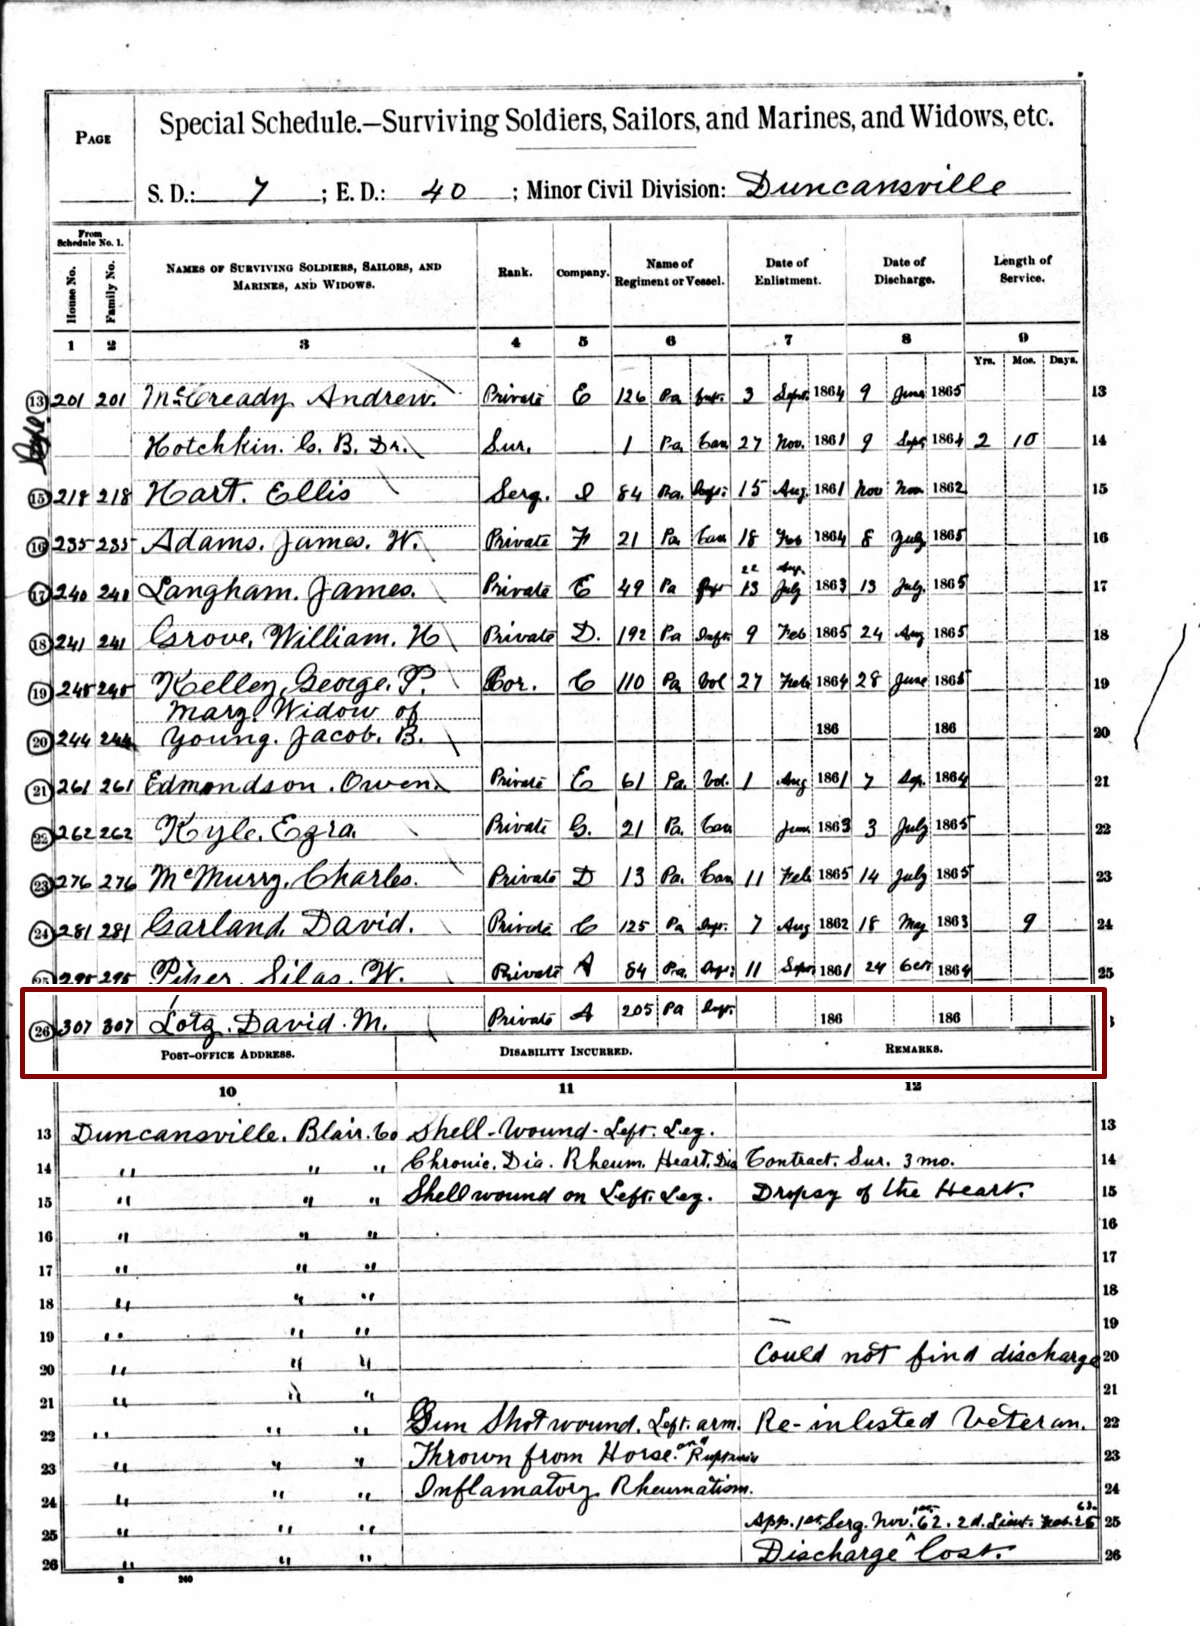 PAGE
Special Schedule.—Surviving Soldiers, Sailors, and Marines, and Widows, etc.
S. D.: 7 ; E. D.: 40 ; Minor Civil Division: Duncansville
From Schedule No. 1.
House No. Family No. NAMES OF SURVIVING SOLDIERS, SAILORS, AND MARINES, AND WIDOWS. Rank. Company. Name of Regiment or Vessel. Date of Enlistment. Date of Discharge. Length of Service.
1 2 3 4 5 6 7 8 9
Yrs. Mos. Days.
13 201 201 McCready Andrew. Private E 126 Pa Inft. 3 Sept. 1864 9 June 1865 13
Hotchkin. C. B. Dr. Sur. 1 Pa. Cav. 27 Nov. 1861 9 Sept 1864 2 10 14
15 218 218 Hart. Ellis Serg. I 84 Pa. Inft. 15 Aug. 1861 Nov 1862 15
16 235 235 Adams. James. W. Private F 21 Pa Cav 18 Feb 1864 8 July 1865 16
22 Aug.
17 240 240 Langham. James. Private E 49 Pa Inft 13 July 1863 13 July. 1865 17
18 241 241 Grove, William. H Private D. 192 Pa Inft. 9 Feb 1865 24 Aug 1865 18
19 Kelley, George. P. Cor. C 110 Pa Vol 27 Feb 1864 28 June 1865 19
Mary. Widow of
20 244 244 Young. Jacob. B. 186 186 20
21 261 261 Edmondson. Owen. Private E 61 Pa. Vol. 1 Aug 1861 7 Sep. 1864 21
22 262 262 Kyle. Ezra. Private G. 21 Pa. Cav June 1863 3 July 1865 22
23 276 276 McMurry, Charles. Private D 13 Pa. Cav 11 Feb 1865 14 July 1865 23
24 281 281 Garland David. Private C 125 Pa Inft. 7 Aug 1862 18 May 1863 9 24
25 295 295 Piper Silas. W. Private A 84 Pa. Inft: 11 Sept 1861 24 Oct 1864 25
26 307 307 Lotz. David. M. Private A 205 Pa Inft. 186 186
POST-OFFICE ADDRESS. DISABILITY INCURRED. REMARKS.
10 11 12
13 Duncansville. Blair. Co Shell-Wound-Left. Leg. 13
14 " " " Chronic. Dia. Rheum. Heart. Dia Contract. Sur. 3 mo. 14
15 " " " Shell wound on Left. Leg. Dropsy of the Heart. 15
16 " " " 16
17 " " " 17
18 " " " 18
19 " " " 19
20 " " " Could not find discharge 20
21 " " " 21
22 " " " Gun Shot wound. Left. arm. Re-inlisted Veteran. 22
23 " " " Thrown from Horse. and 23
24 " " " Inflamatory Rheumatism. 24
25 " " " App. 1st Serg. Nov. 1st 62. 2d. Lieut. 63. 25
26 " " " Discharge Lost. 26